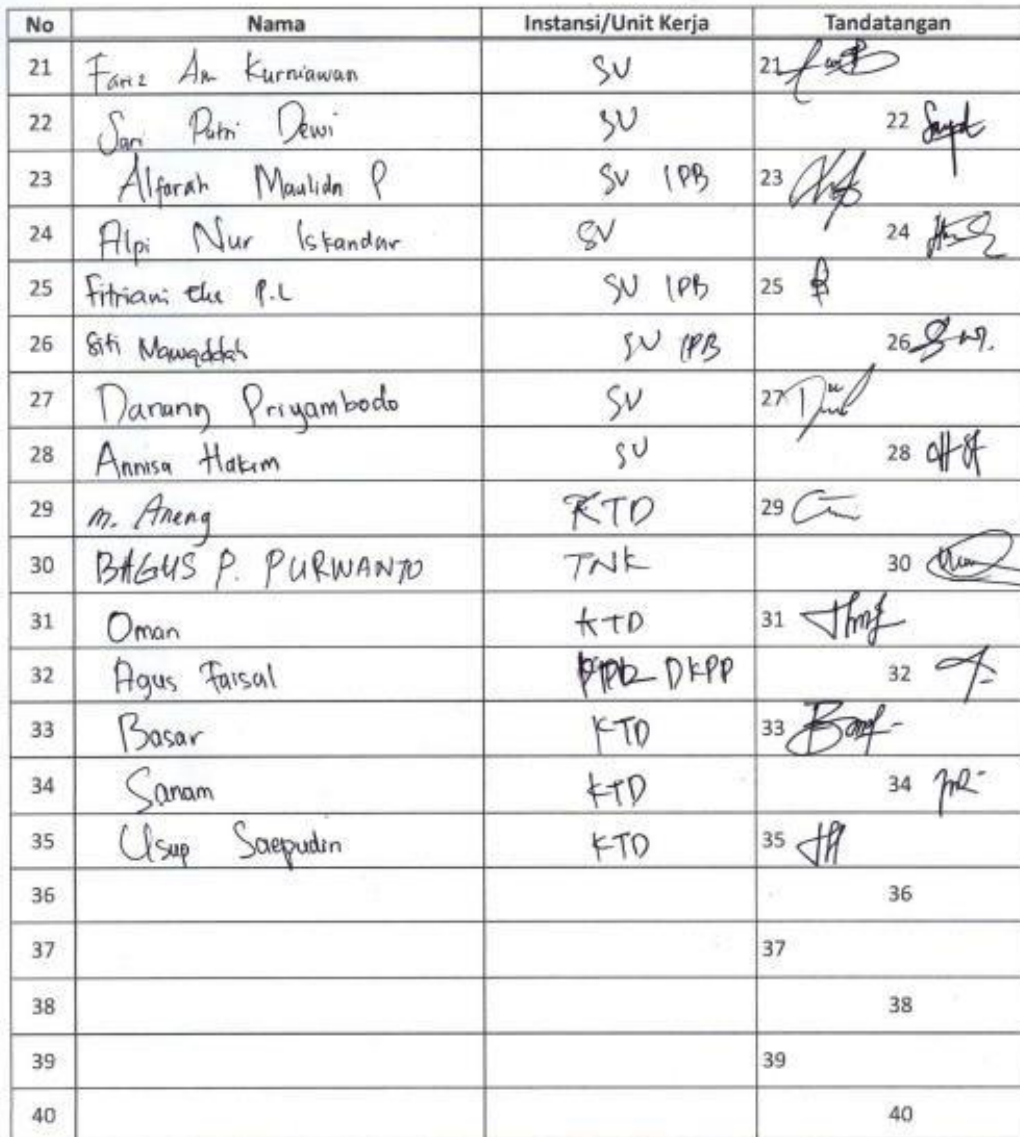 No Nama Instansi/Unit Kerja Tandatangan
21 Fariz Am Kurniawan SV 21
22 Sari Putri Dewi SV 22
23 Alfarah Maulida P SV IPB 23
24 Alpi Nur Iskandar SV 24
25 Fitriani P.L SV IPB 25
26 Siti Mawaddah SV IPB 26
27 Danang Priyambodo SV 27
28 Annisa Hakim SV 28
29 M. Aneng KTD 29
30 BAGUS P. PURWANTO TNK 30
31 Oman KTD 31
32 Agus Faisal DKPP 32
33 Basar KTD 33
34 Sanam KTD 34
35 Usup Saepudin KTD 35
36 36
37 37
38 38
39 39
40 40